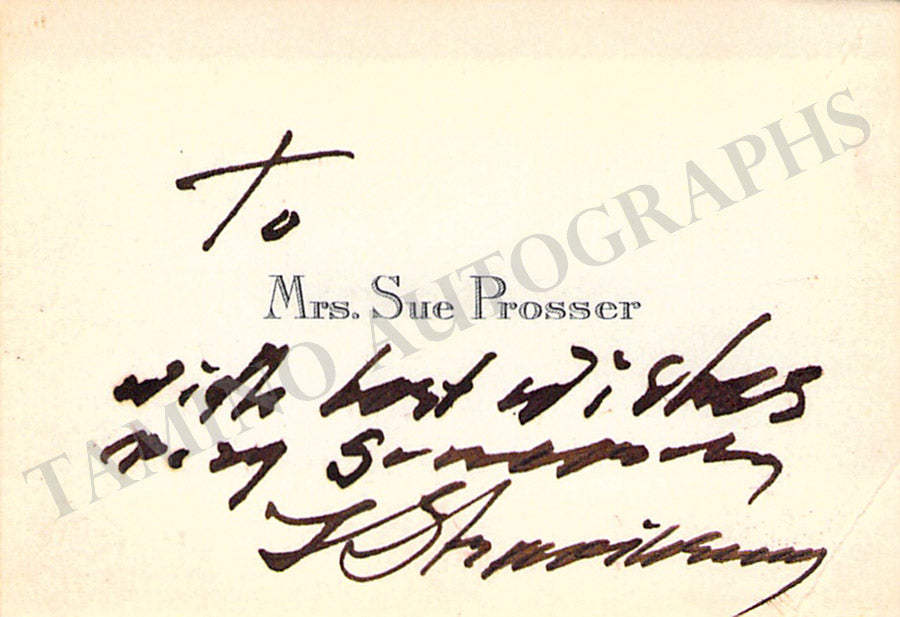 To
Mrs. Sue Prosser
with best wishes
Very Sincerely
I Stravinsky
TAMINO AUTOGRAPHS